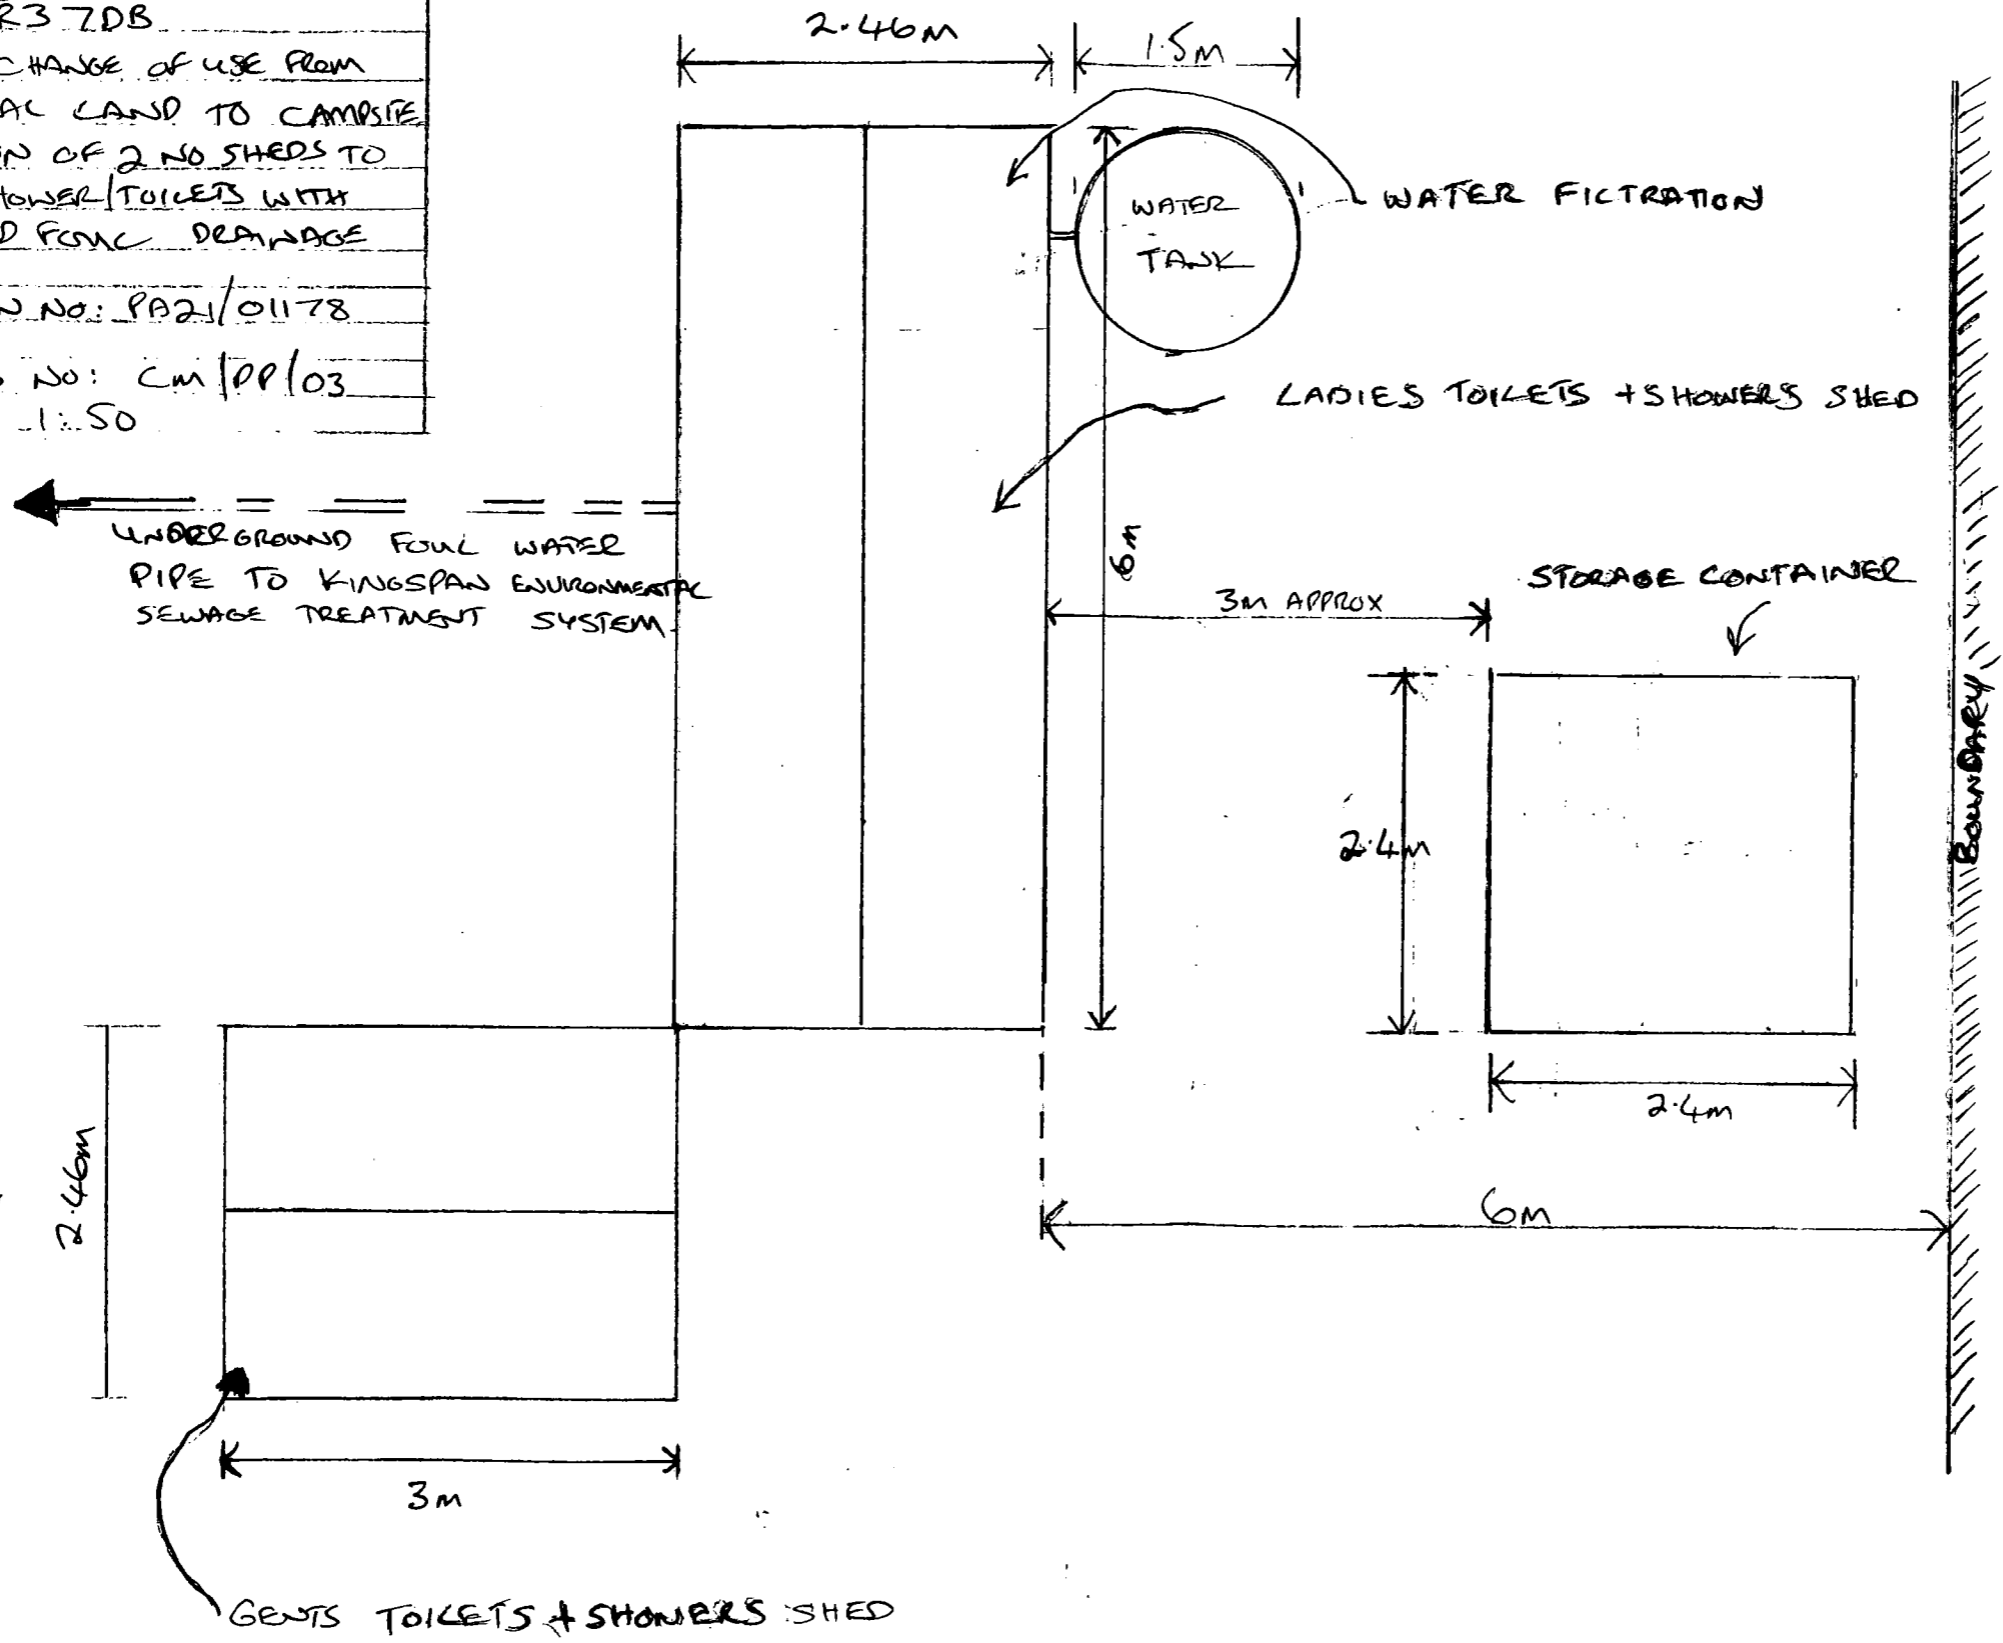 R3 7DB
CHANGE OF USE FROM
AL LAND TO CAMPSITE
N OF 2 NO SHEDS TO
HOWER/TOILETS WITH
D FOUL DRAINAGE
N NO: PA21/01178
NO: CM/PP/03
1:50
2.46M
1.5M
WATER
TANK
WATER FILTRATION
LADIES TOILETS + SHOWERS SHED
UNDERGROUND FOUL WATER
PIPE TO KINGSPAN ENVIRONMENTAL
SEWAGE TREATMENT SYSTEM
6M
3M APPROX
STORAGE CONTAINER
2.4M
2.4M
BOUNDARY
6M
2.46M
3M
GENTS TOILETS + SHOWERS SHED